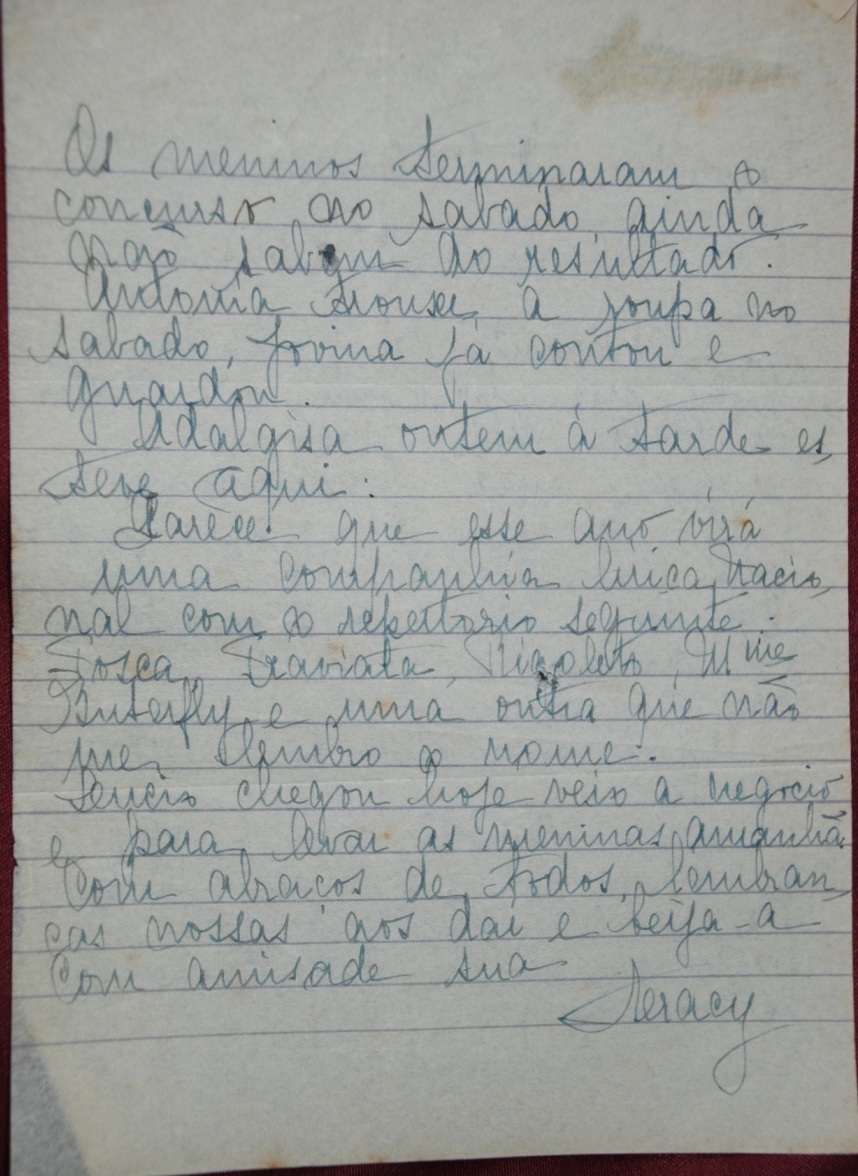 Os meninos terminaram o
concurso no sabado, ainda
não sabem do resultado.
Antonia trouxe a roupa no
sabado, Jovina já contou e
guardou.
Adalgisa ontem à tarde es,
teve aqui.
Parece que esse ano virá
uma companhia lirica Nacio,
nal com o repertorio seguinte:
Tosca, Traviata, Rigoleto, Mme
Buterfly e uma outra que não
me lembro o nome.
chegou hoje veio a negocio
e para levar as meninas amanhã.
Com abraços de todos, lembran,
ças nossas aos daí e beija-a
com amisade sua